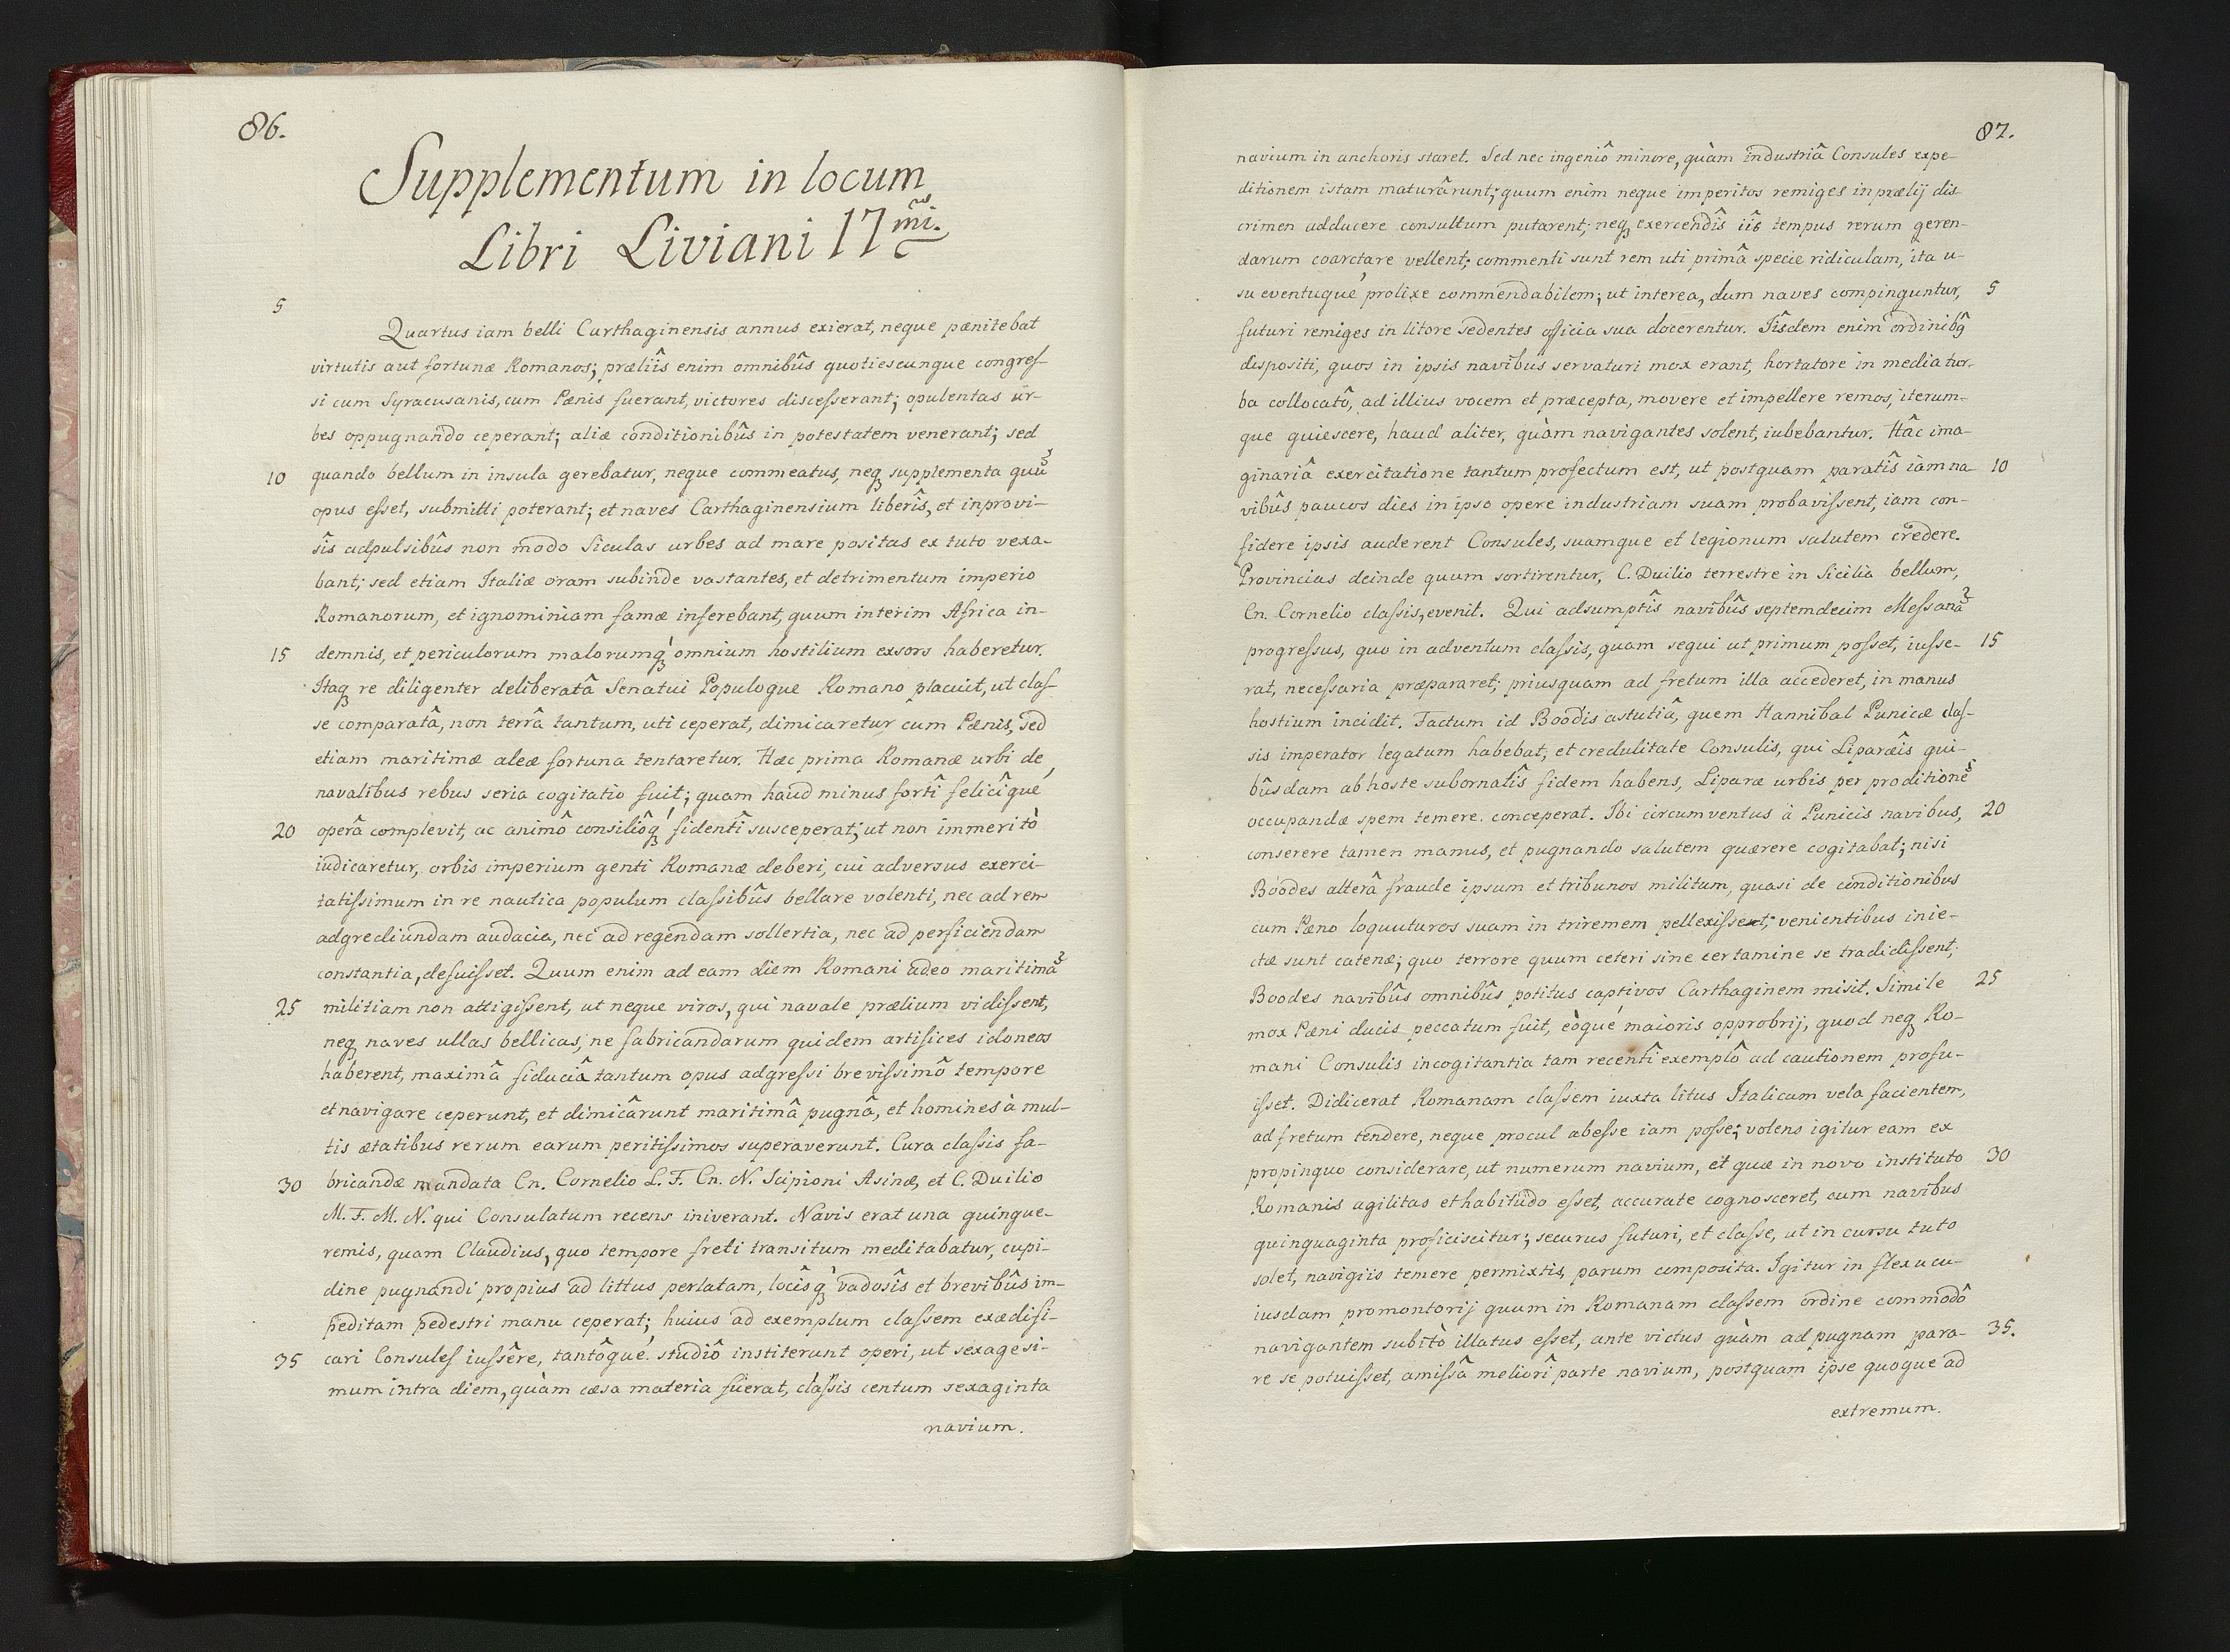 86.
Supplementum in locum
Libri Liviani 17mi.
5
Quartus iam belli Carthaginensis annus exierat, neque pænitebat
virtutis aut fortunæ Romanos; præliîs enim omnibûs quotiescunque congreſ-
si cum Syracusanis, cum Pænis fuerant, victores disceſserant; opulentas ur-
bes oppugnando ceperant; aliæ conditionibûs in potestatem venerant; sed
10 quando bellum in insula gerebatur, neque commeatus, neqꝫ supplementa quũ
opus eſset, submitti poterant; et naves Carthaginensium liberîs, et inprovi-
sîs adpulsibûs non modo Siculas urbes ad mare positas ex tuto vexa-
bant; sed etiam Italiæ oram subinde vastantes, et detrimentum imperio
Romanorum, et ignominiam famæ inferebant, quum interim Africa in-
15 demnis, et periculorum malorumqꝫ́ omnium hostilium exsors haberetur.
Itaqꝫ re diligenter deliberatâ Senatui Populoque Romano placuit, ut claſ-
se comparatâ, non terrâ tantum, uti ceperat, dimicaretur cum Pænis, sed
etiam maritimæ aleæ fortuna tentaretur. Hæc prima Romanæ urbi de
navalibus rebus seria cogitatio fuit; quam haud minus fortî felicîqué
20 operâ complevit, ac animô consiliôqꝫ́ fidentî susceperat; ut non immeritò
iudicaretur, orbis imperium genti Romanæ deberi, cui adversus exerci-
tatiſsimum in re nautica populum claſsibûs bellare volenti, nec ad rem
adgrediundam audacia, nec ad regendam sollertia, nec ad perficiendam
constantia, defuiſset. Quum enim ad eam diem Romani adeo maritimã
25 militiam non attigiſsent, ut neque viros, qui navale prælium vidiſsent,
neqꝫ naves ullas bellicas, ne fabricandarum quidem artifices idoneos
haberent, maximâ fiduciâ tantum opus adgreſsi breviſsimô tempore
et navigare ceperunt, et dimicârunt maritimâ pugnâ, et homines à mul-
tis ætatibus rerum earum peritiſsimos superaverunt. Cura claſsis fa-
30 bricandæ mandata Cn. Cornelio L. F. Cn. N. Scipioni Asinæ, et C. Duilio
M. F. M. N. qui Consulatum recens iniverant. Navis erat una quinque-
remis, quam Claudius, quo tempore freti transitum meditabatur, cupi-
dine pugnandi propius ad littus perlatam, locîsqꝫ́ vadosîs et brevibûs im-
peditam pedestri manu ceperat; huius ad exemplum claſsem exædifi-
35 cari Consuleſ iuſsêre, tantôqué studiô institerunt operi, ut sexagesi-
mum intra diem, quàm cæsa materia fuerat, claſsis centum sexaginta
navium.
87.
navium in anchoris staret. Sed nec ingeniô minore, quàm industriâ Consules expe-
ditionem istam maturârunt; quum enim neque imperitos remiges in prælij dis-
crimen adducere consultum putarent; neqꝫ exercendîs iîs tempus rerum geren-
darum coarctare vellent; commenti sunt rem uti primâ specie ridiculam, ita u-
su eventuqué prolixe commendabilem; ut interea, dum naves compinguntur, 5
futuri remiges in litore sedentes officia sua docerentur. Iîsdem enim ordinibꝫ
despositi, quos in ipsis navibûs servaturi mox erant, hortatore in media tur-
ba collocatô, ad illius vocem et præcepta, movere et impellere remos, iterum-
que quiescere, haud aliter, quàm navigantes solent, iubebantur. Hâc ima-
ginariâ exercitatione tantum profectum est, ut postquam paratîs iam na- 10
vibûs paucos dies in ipso opere industriam suam probaviſsent, iam con-
fidere ipsis auderent Consules, suamque et legionum salutem credere.
Provincias deinde quum sortirentur, C. Duilio terrestre in Sicilia bellum,
Cn. Cornelio claſsis, evenit. Qui adsumptîs navibûs septemdecim Meſsanã
progreſsus, quo in adventum claſsis, quam sequi ut primum poſset, iuſse- 15
rat, neceſsaria præpararet; priusquam ad fretum illa accederet, in manus
hostium incidit. Factum id Boodis astutiâ, quem Hannibal Punicæ claſ-
sis imperator legatum habebat, et credulitate Consulis, qui Liparæîs qui-
bûsdam ab hoste subornatîs fidem habens, Liparæ urbis per proditionẽ
occupandæ spem temere conceperat. Ibi circumventus à Punicis navibus, 20
conserere tamen manus, et pugnando salutem quærere cogitabat; nisi
Boodes alterâ fraude ipsum et tribunos militum, quasi de conditionibus
cum Pæno loquuturos suam in triremem pellexiſset; venientibus inie-
ctæ sunt catenæ; quo terrore quum ceteri sine certamine se tradidiſsent;
Boodes navibûs omnibûs potitus captivos Carthaginem misit. Simile 25
mox Pæni ducis peccatum fuit, eòqué maioris opprobrij, quod neqꝫ Ro-
mani Consulis incogitantia tam recentî exemplô ad cautionem profu-
iſset. Didicerat Romanam claſsem iuxta litus Italicum vela facientem,
ad fretum tendere, neque procul abeſse iam poſse; volens igitur eam ex
propinquo considerare, ut numerum navium, et quæ in novo instituto 30
Romanis agilitas et habitudo eſset, accurate cognosceret, cum navibus
quinquaginta proficiscitur; securus futuri, et claſse, ut in cursu tuto
solet, navigiis temere permixtis, parum composita. Igitur in flexu cu-
iusdam promontorij quum in Romanam claſsem ordine commodô
navigantem subitò illatus eſset, ante victus quàm ad pugnam para- 35.
re se potuiſset, amiſsâ meliorî parte navium, postquam ipse quoque ad
extremum.